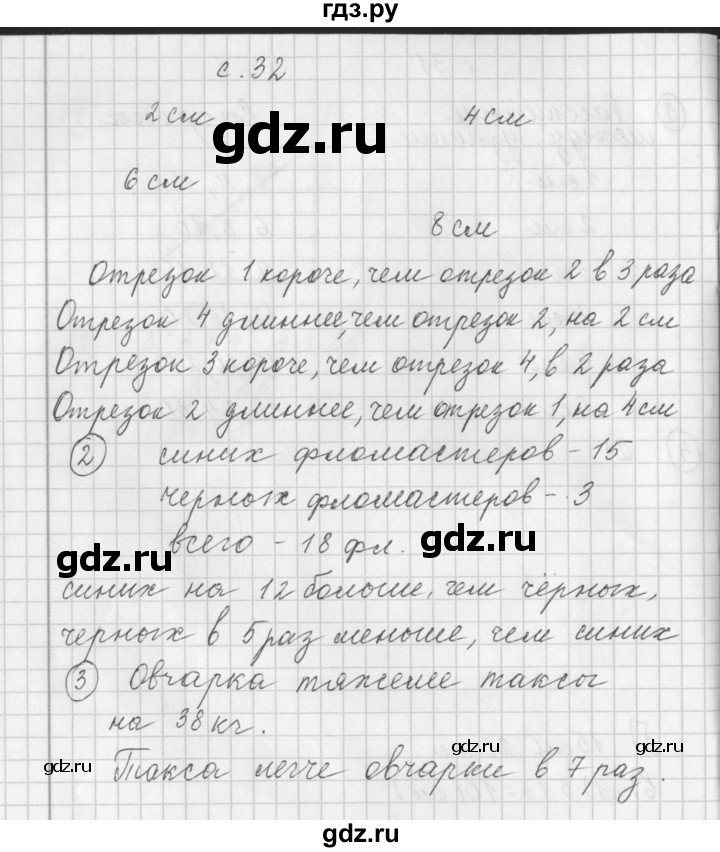 гдз.ру
с. 32
2 см
4 см
gdz.ru
6 см
8 см
Отрезок 1 короче, чем отрезок 2 в 3 раза
Отрезок 4 длиннее, чем отрезок 2, на 2 см
Отрезок 3 короче, чем отрезок 4, в 2 раза
Отрезок 2 длиннее, чем отрезок 1, на 4 см
2 синих фломастеров - 15
черных фломастеров - 3
всего - 18 фл.
gdz.ru
gdz.ru
синих на 12 больше, чем чёрных,
черных в 5 раз меньше, чем синих
3 Овчарка тяжелее таксы
на 38 кг.
gdz.ru
gdz.ru
gdz.ru
Такса легче овчарки в 7 раз.
gdz.ru